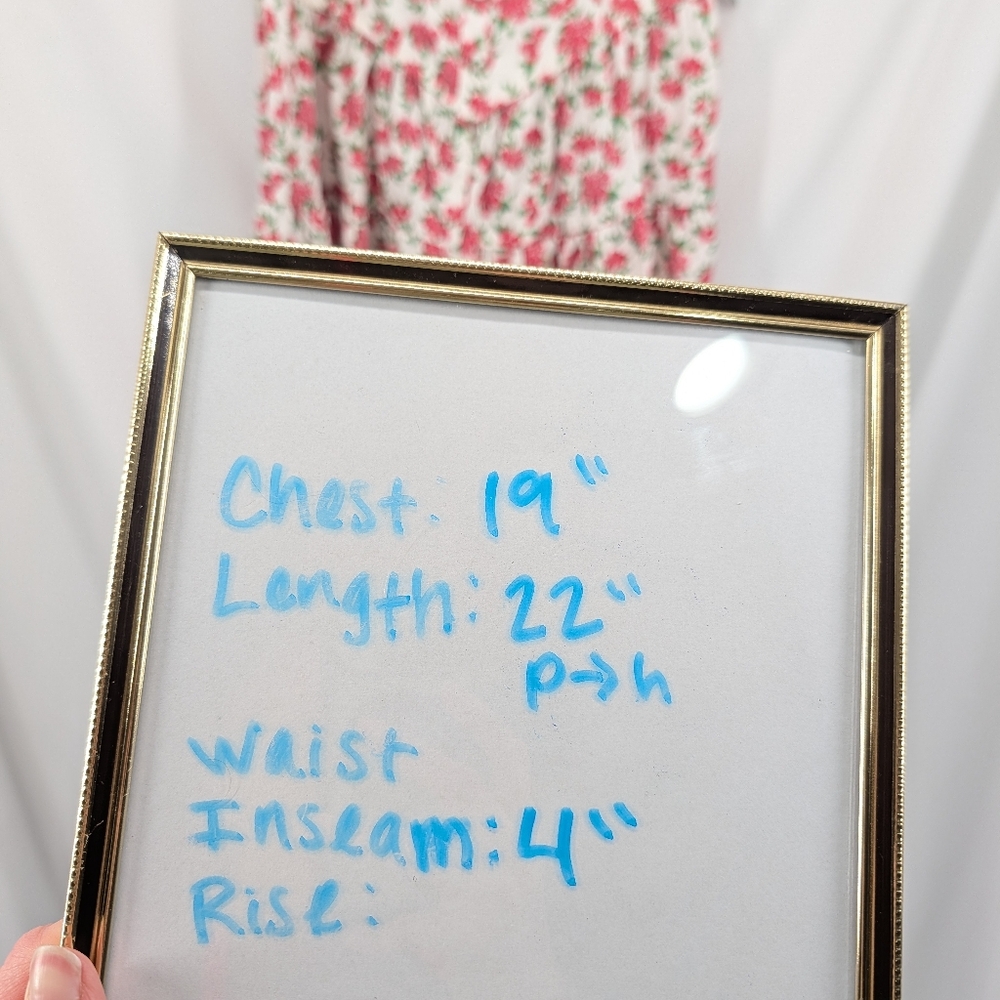 Chest: 19"
Length: 22"
p→h
Waist
Inseam: 4"
Rise: